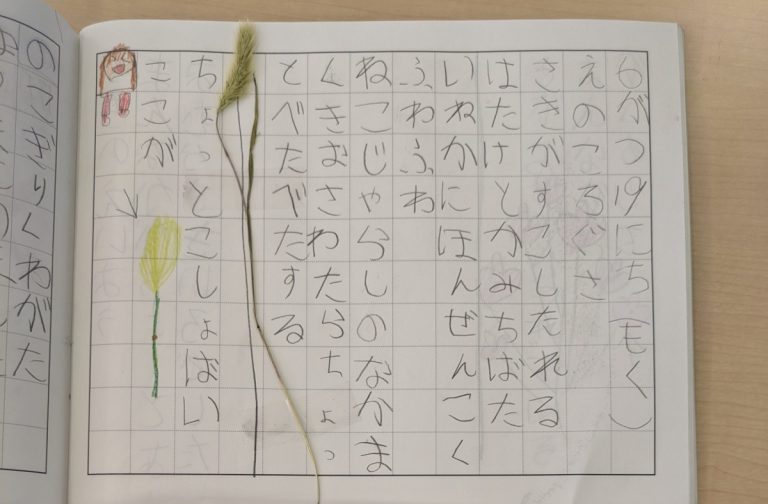 6がつ19にち(もく)
えのころぐさ
さきがすこしたれる
はたけとかみちばた
いねかにほんぜんこく
ふわふわ
ねこじゃらしのなかま
くきおさわたらちょっ
とべたべたする
ちょっとこしょばい
ここが
のこぎりくわがた